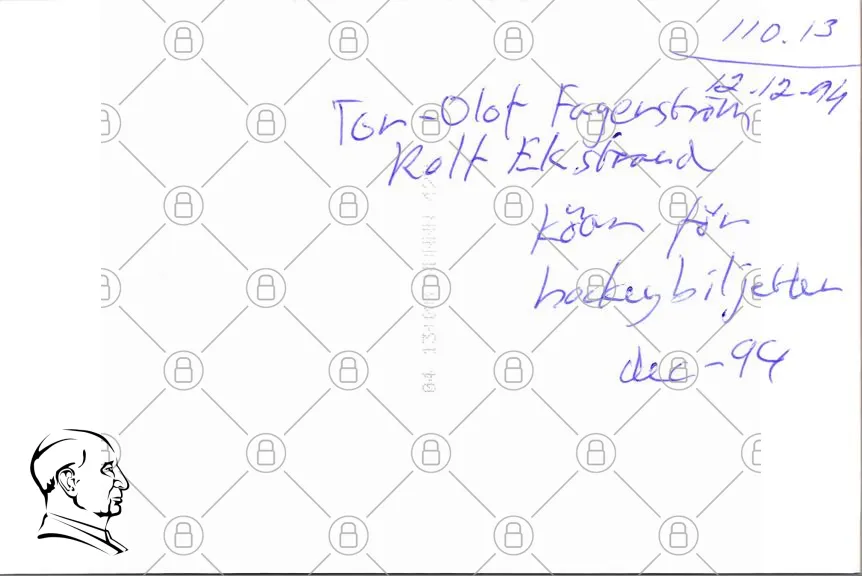 110.13
12-12-94
Tor-Olof Fagerström
Rolf Ekstrand
köar för
hockeybiljetter
dec-94